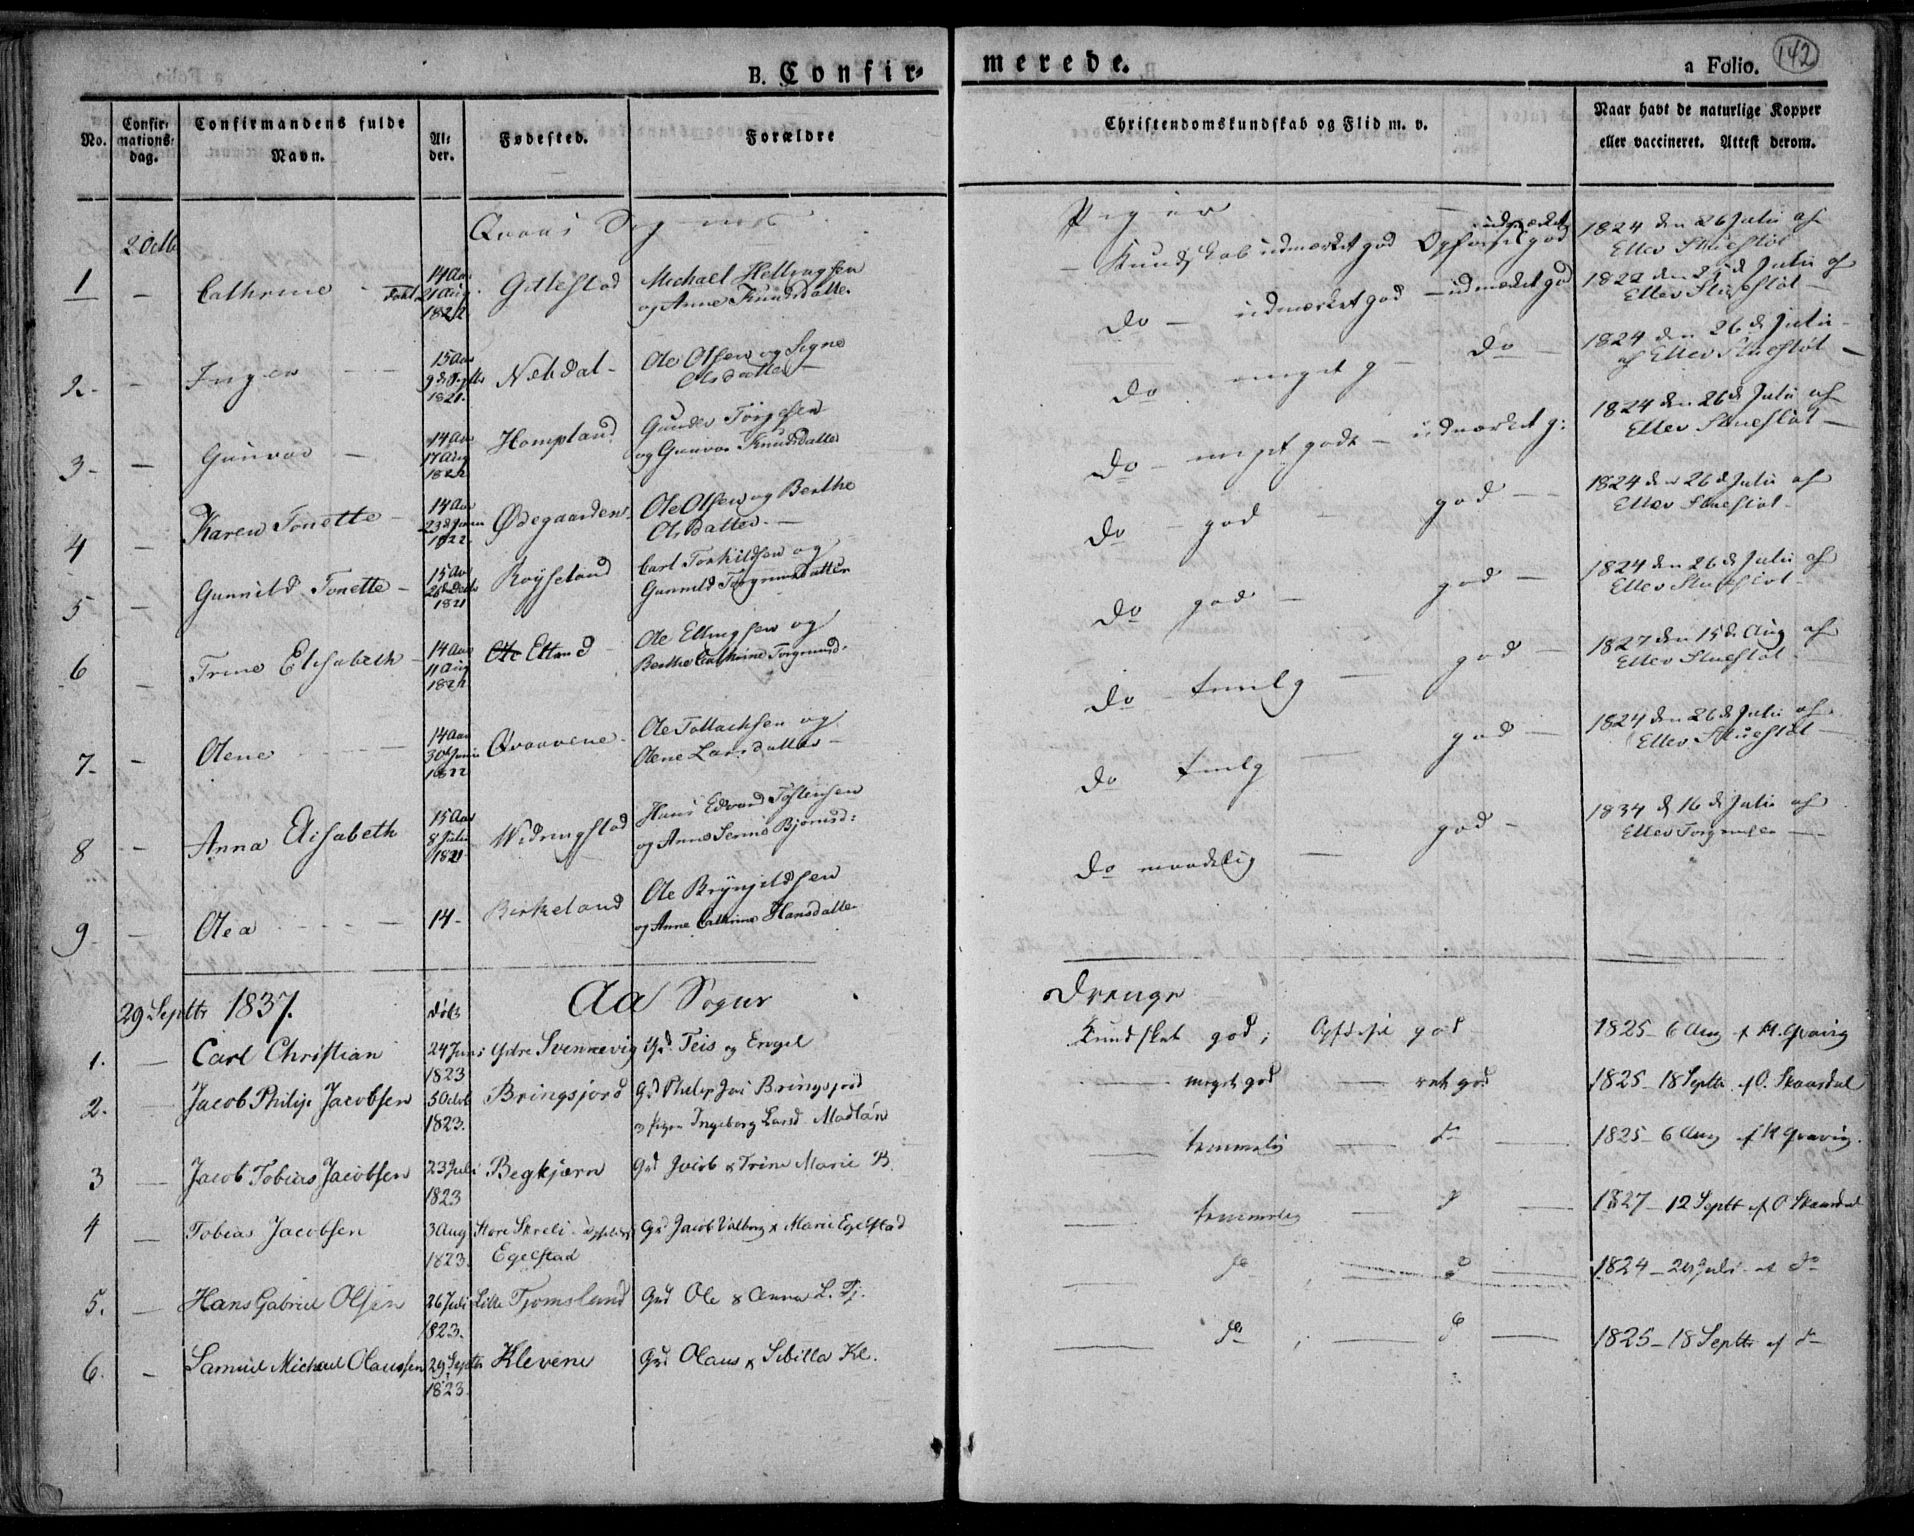 B. Confir-
merede.
a Folio. 142
No.
Confir-
mations-
dag.
Confirmandens fulde
Navn.
Al-
der.
Fødested.
Forældre
Christendomskundskab og Flid m. v.
Naar havt de naturlige Kopper
eller vaccineret. Attest derom.
Piger
2 Octb
Kundskab udmærket god Opførsel udmærket god
1824 den 26 Julii af
Ellev Stuestøl
1 — Cathrine
14 Aar
21 Aug
1822
Gitlestad
Michael Hellingsen
og Anne Knudsdatter
Do — udmærket god — udmærket god
1822 den 25 d Julii af
Ellev Stuestøl —
2 - — Inger
15 Aar
9 d Septbr
1821.
Nebdal -
Ole Olsen og Signe
Olsdatter —
Do meget g — Do —
1824 den 26 d Julii
af Ellev Stuestøl —
3 - — Gunvor —
14 Aar
17 Aug
1822
Hompland
Gunder Torgesen
og Gunvor Knudsdatter
Do — meget godt — udmærket g:
1824 den 26 d Julii af
Ellev Stuestøl —
4 — Karen Tonette -
14 Aar
23 d Junii
1822
Ødegaarden
Ole Olsen og Berthe
Olsdatter. —
Do — god — god —
1824 den 26 d Julii af
Ellev Stuestøl -
5 — Gunnild Tonette -
15 Aar
1821
Røyseland
Carl Torkildsen og
Gunnild Torgrimsdatter
Do god — god —
1824 den 26 d Julii af
Ellev Stuestøl -
6 — Trine Elisabeth
14 Aar
11 Aug
1822
Ole Eltand
Ole Ellingsen og
Berthe Cathrine Torgrimsd.
Do — temlig — god —
1827 den 15 d. Aug af
Ellev Stuestøl
7 - — Olene —
14 Aar
30 d Junii
1822
Qvaavene
Ole Tollachsen og
Olene Larsdatter —
Do temlig — god —
1824 den 26 d Julii af
Ellev Stuestøl —
8 — Anna Elisabeth
15 Aar
8 Julii
1821
Widringstad
Hans Edvard Tostensen
og Anne Serine Bjornsd:
Do maadelig — god —
1834 d 16 d Julii af
Ellev Torgrimsen —
9 - — Olea —
14 -
Birkeland
Ole Brynjildsen
og Anne Cathrine Hansdatter
29 Septbr 1837.
døbt
Aa Sogn
Drenge
1. — Carl Christian
24 Juni
1823
Ydre Svennevig
Gd Teis og Engel
Kundskab god; Opførsel god
1825 - 6 Aug
2. — Jacob Philip Jacobsen
5 Octob
1823.
Bringsjord
Gd Philip Jac Bringsjord
o pigen Ingeborg Larsd
— meget god — ret god
1825 - 18 Septbr af O. Skaardal
3 — Jacob Tobias Jacobsen
23 Juli
1823
Begkjærn
Gd Jacob & Trine Marie B.
— temmelig — do —
1825 - 6 Aug
4 — Tobias Jacobsen
3 Aug
1823.
Store Skreli
Egelstad
Gd Jacob Valborg & Marie Egelstad
— temmelig — do —
1827 - 12 Septbr af O Skaardal
5. — Hans Gabriel Olsen
26 Juli
1823.
Lille Tjomsland
Gd Ole & Anna L. Tj.
— do —
1824 - 26 Juli af do
6. — Samuel Michael Olaussen
29 Septbr
1823.
Klevene
Gd Olaus & Sibilla Kl.
— do — do —
1825 - 18 Septbr af do